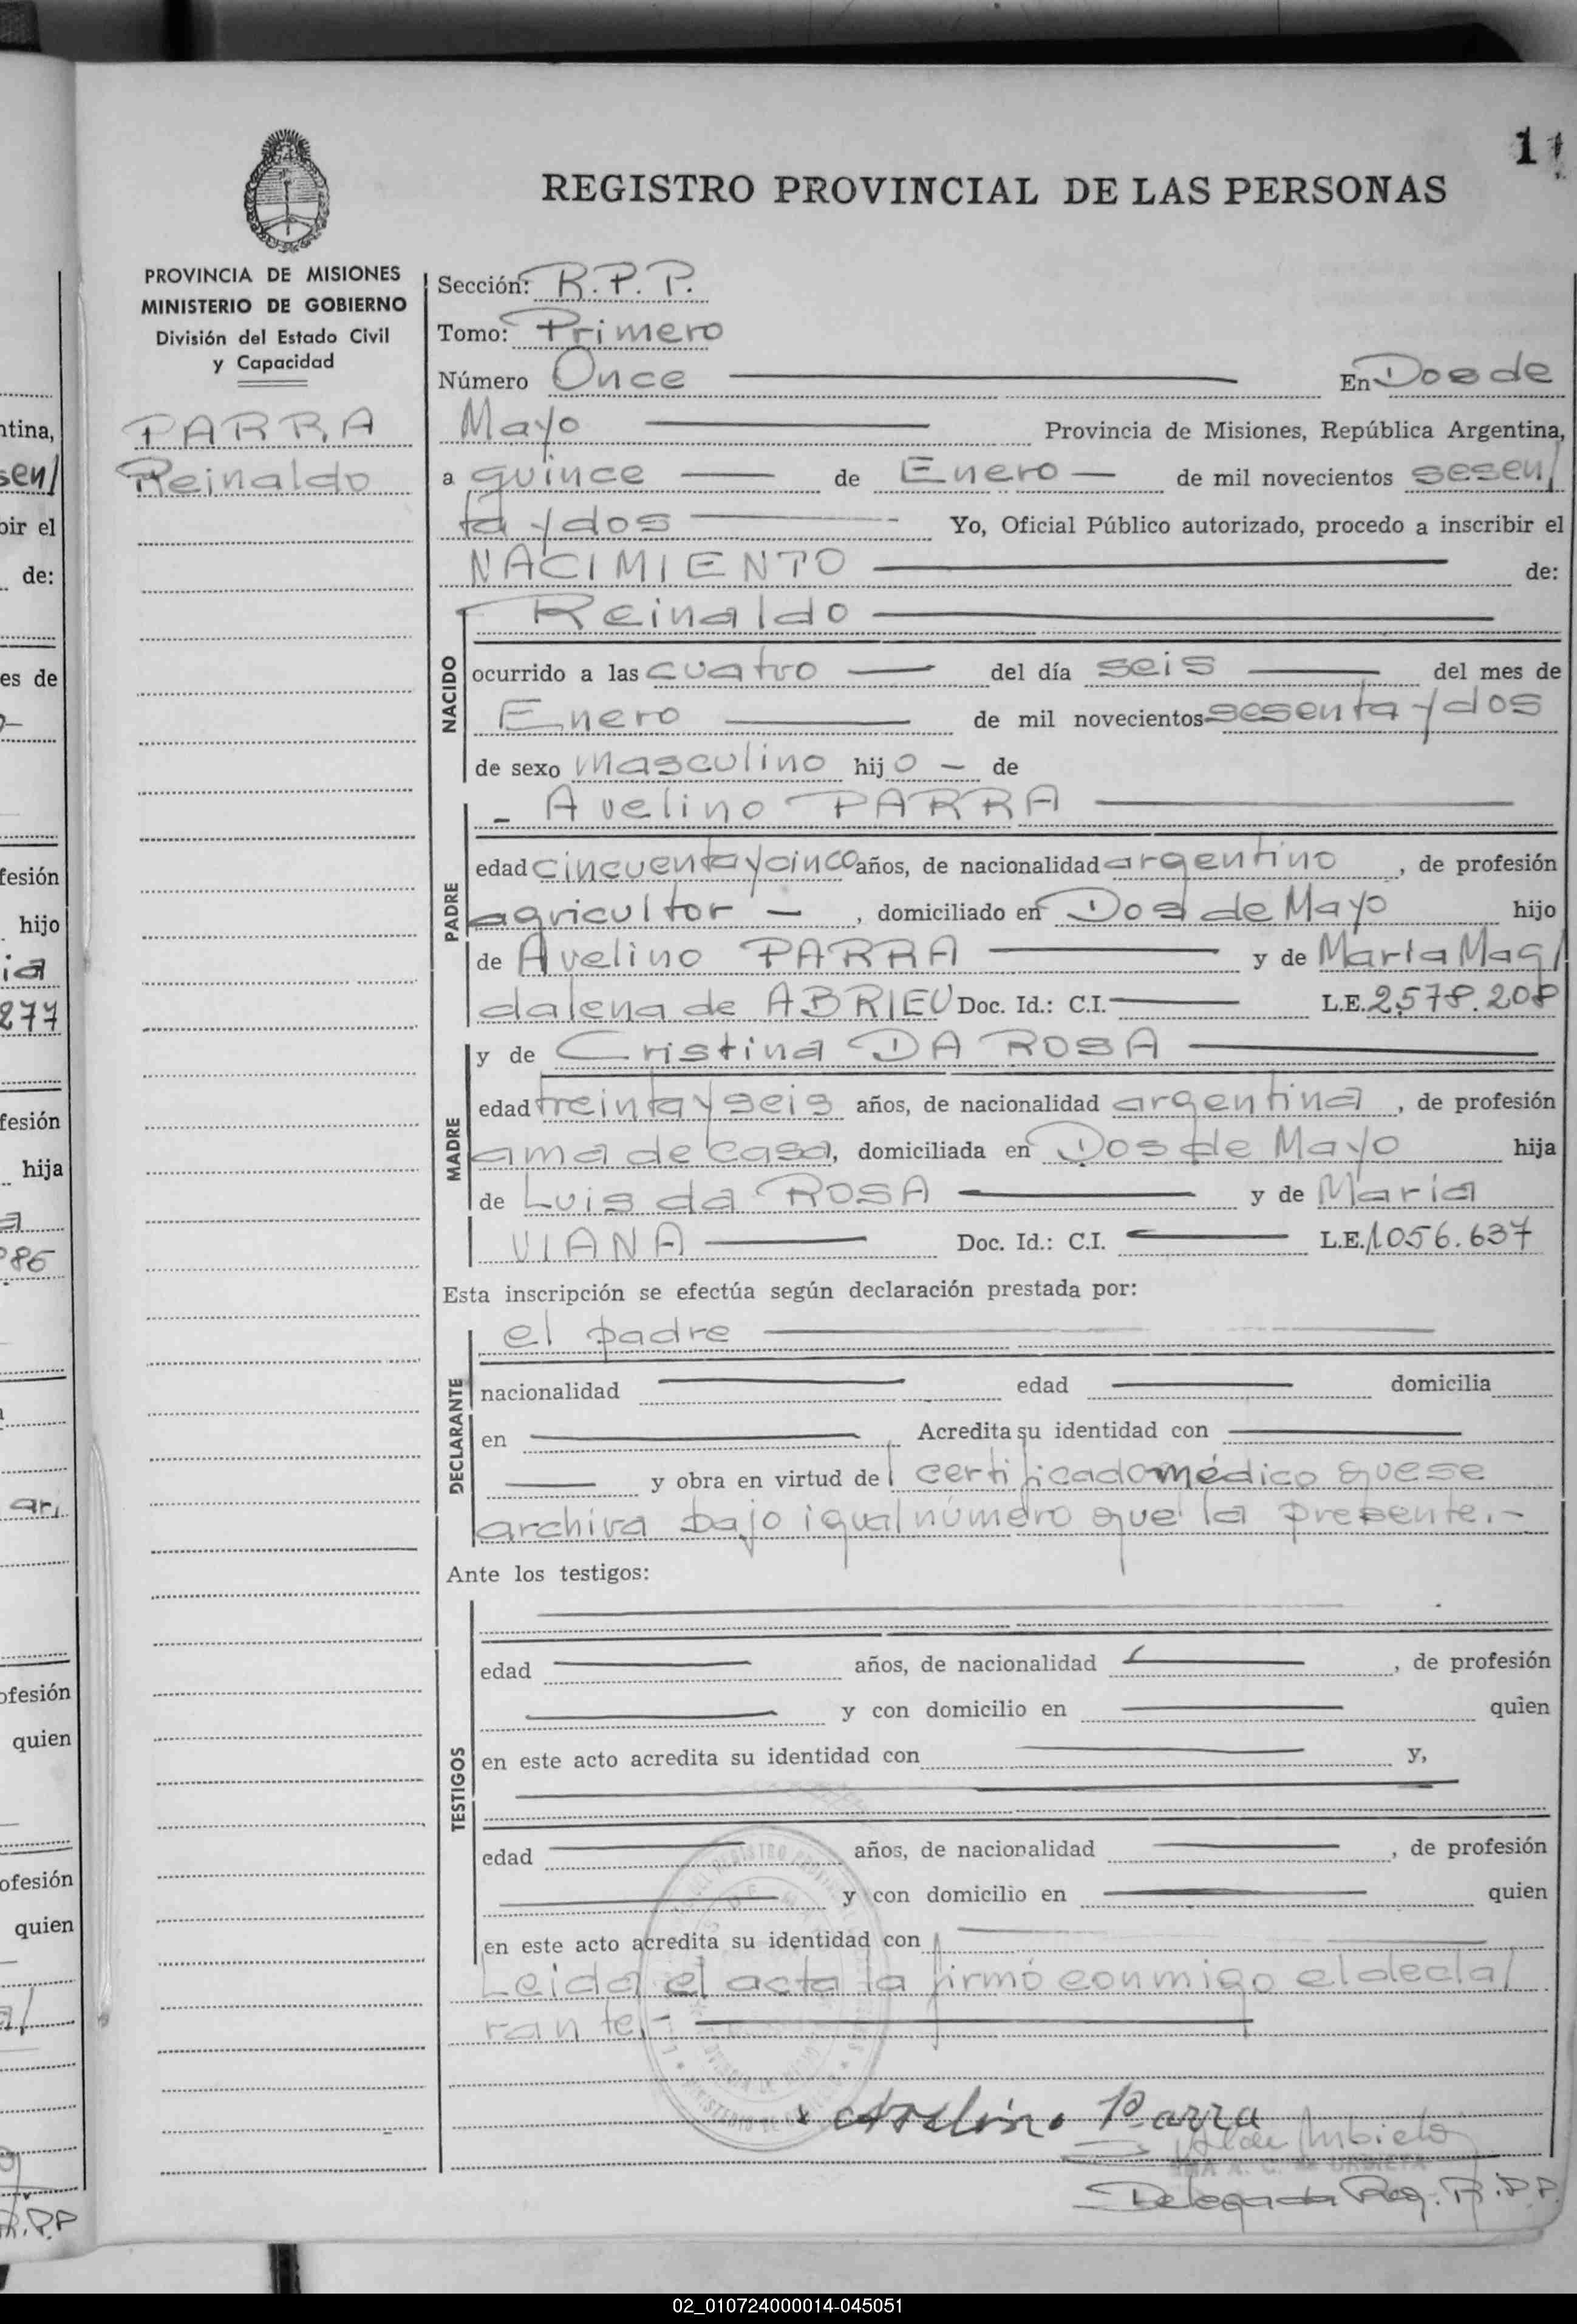 11
REGISTRO PROVINCIAL DE LAS PERSONAS
PROVINCIA DE MISIONES
MINISTERIO DE GOBIERNO
División del Estado Civil
y Capacidad
PARRA
Reinaldo
Sección: R.P.P.
Tomo: Primero
Número Once En Dos de
Mayo Provincia de Misiones, República Argentina,
a quince de Enero de mil novecientos sesen/
ta y dos Yo, Oficial Público autorizado, procedo a inscribir el
NACIMIENTO de:
Reinaldo
NACIDO
ocurrido a las cuatro del día seis del mes de
Enero de mil novecientos sesenta y dos
de sexo masculino hijo de
Avelino PARRA
PADRE
edad cincuenta y cinco años, de nacionalidad argentino, de profesión
agricultor, domiciliado en Dos de Mayo hijo
de Avelino PARRA y de Maria Mag/
dalena de ABRIEU Doc. Id.: C.I. L.E. 2.578.208
y de Cristina DA ROSA
MADRE
edad treinta y seis años, de nacionalidad argentina, de profesión
ama de casa, domiciliada en Dos de Mayo hija
de Luis da ROSA y de Maria
VIANA Doc. Id.: C.I. L.E. 1.056.637
Esta inscripción se efectúa según declaración prestada por:
el padre
DECLARANTE
nacionalidad edad domicilia
en Acredita su identidad con
y obra en virtud del certificado médico que se
archiva bajo igual número que la presente.-
Ante los testigos:
TESTIGOS
edad años, de nacionalidad , de profesión
y con domicilio en quien
en este acto acredita su identidad con y,
edad años, de nacionalidad , de profesión
y con domicilio en quien
en este acto acredita su identidad con
Leida el acta la firmó conmigo el decla/
rante.-
x Avelino Parra
Delegada Reg. R.P.P.
02_010724000014-045051